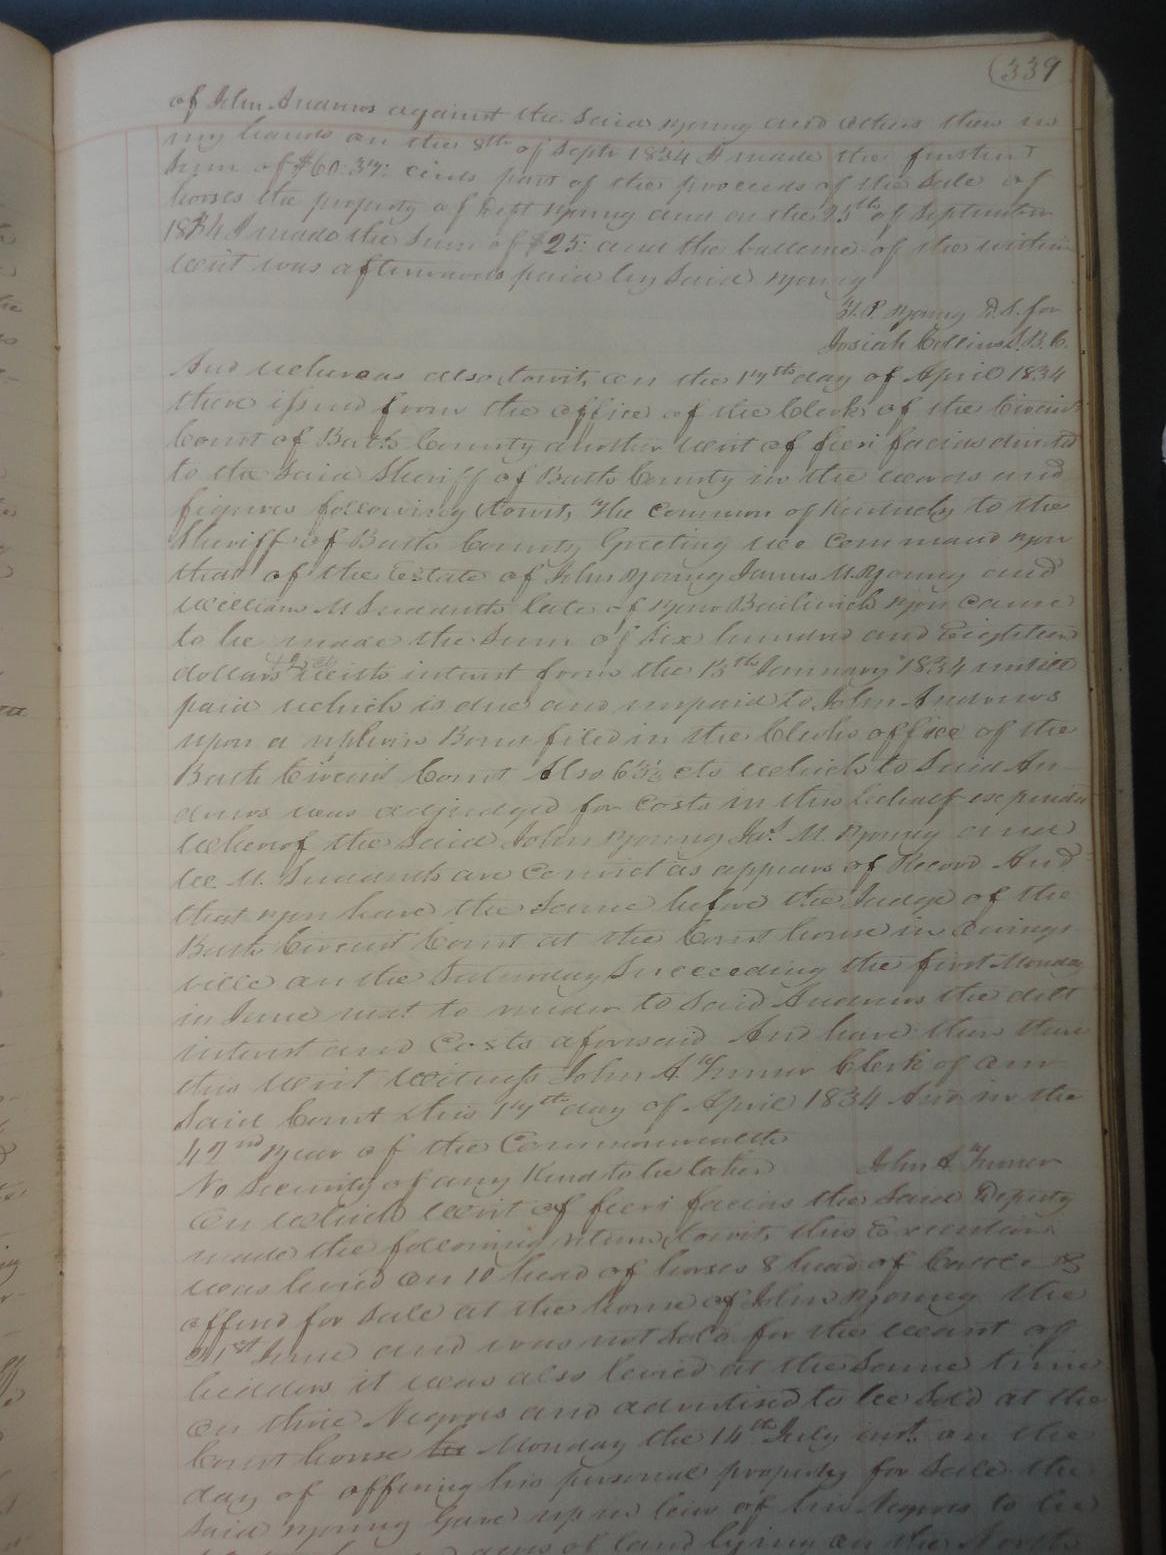 (339
of John Andrews against the said Young and others then in
my hands on the 8th of Septr 1834 I made the further
sum of $60.37½ cents part of the proceeds of the sale of
horses the property of Deft Young and on the 25th of September
1834 I made the sum of $25: and the ballence of the within
writ was afterwards paid by said Young
Young D.S. for
Josiah Collins S.B.C.
And whereas also towit, on the 17th day of April 1834
there issued from the office of the Clerk of the Circuit
Court of Bath County another writ of fieri facias directed
to the said Sheriff of Bath County in the words and
figures following towit, The Common of Kentucky to the
Sheriff of Bath County Greeting we command you
that of the Estate of John Young James M. Young and
William M Sudduth late of your Bailiwick you cause
to be made the sum of six hundred and Eighteen
dollars with interest from the 13th January 1834 untill
paid which is due and unpaid to John Andrews
upon a replevin Bond filed in the Clerks office of the
Bath Circuit Court Also 63½ cts which to said An-
drews was adjudged for costs in this behalf expended
whereof the said John Young Jas. M. Young and
W. M. Sudduth are convict as appears of Record And
that you have the same before the Judge of the
Bath Circuit Court at the Court house in Owings
ville on the Saturday succeeding the first Monday
in June next to render to said Andrews the debt
interest and Costs aforesaid And have then there
this writ Witness John A. Turner Clerk of our
said Court this 17th day of April 1834 And in the
42nd Year of the Commonwealth
No security of any kind to be taken John A Turner
On which writ of fieri facias the said Deputy
made the following return, towit, this Execution
was levied on 10 head of horses 8 head of Cattle &
offered for sale at the home of John Young the
21st June and was not sold for the want of
bidders it was also levied at the same time
on three Negroes and advertised to be sold at the
Court house Monday the 14th July inst. on the
day of offering his personal property for sale the
said Young Gave up in lieu of his Negroes to be
acres of land lying on the North